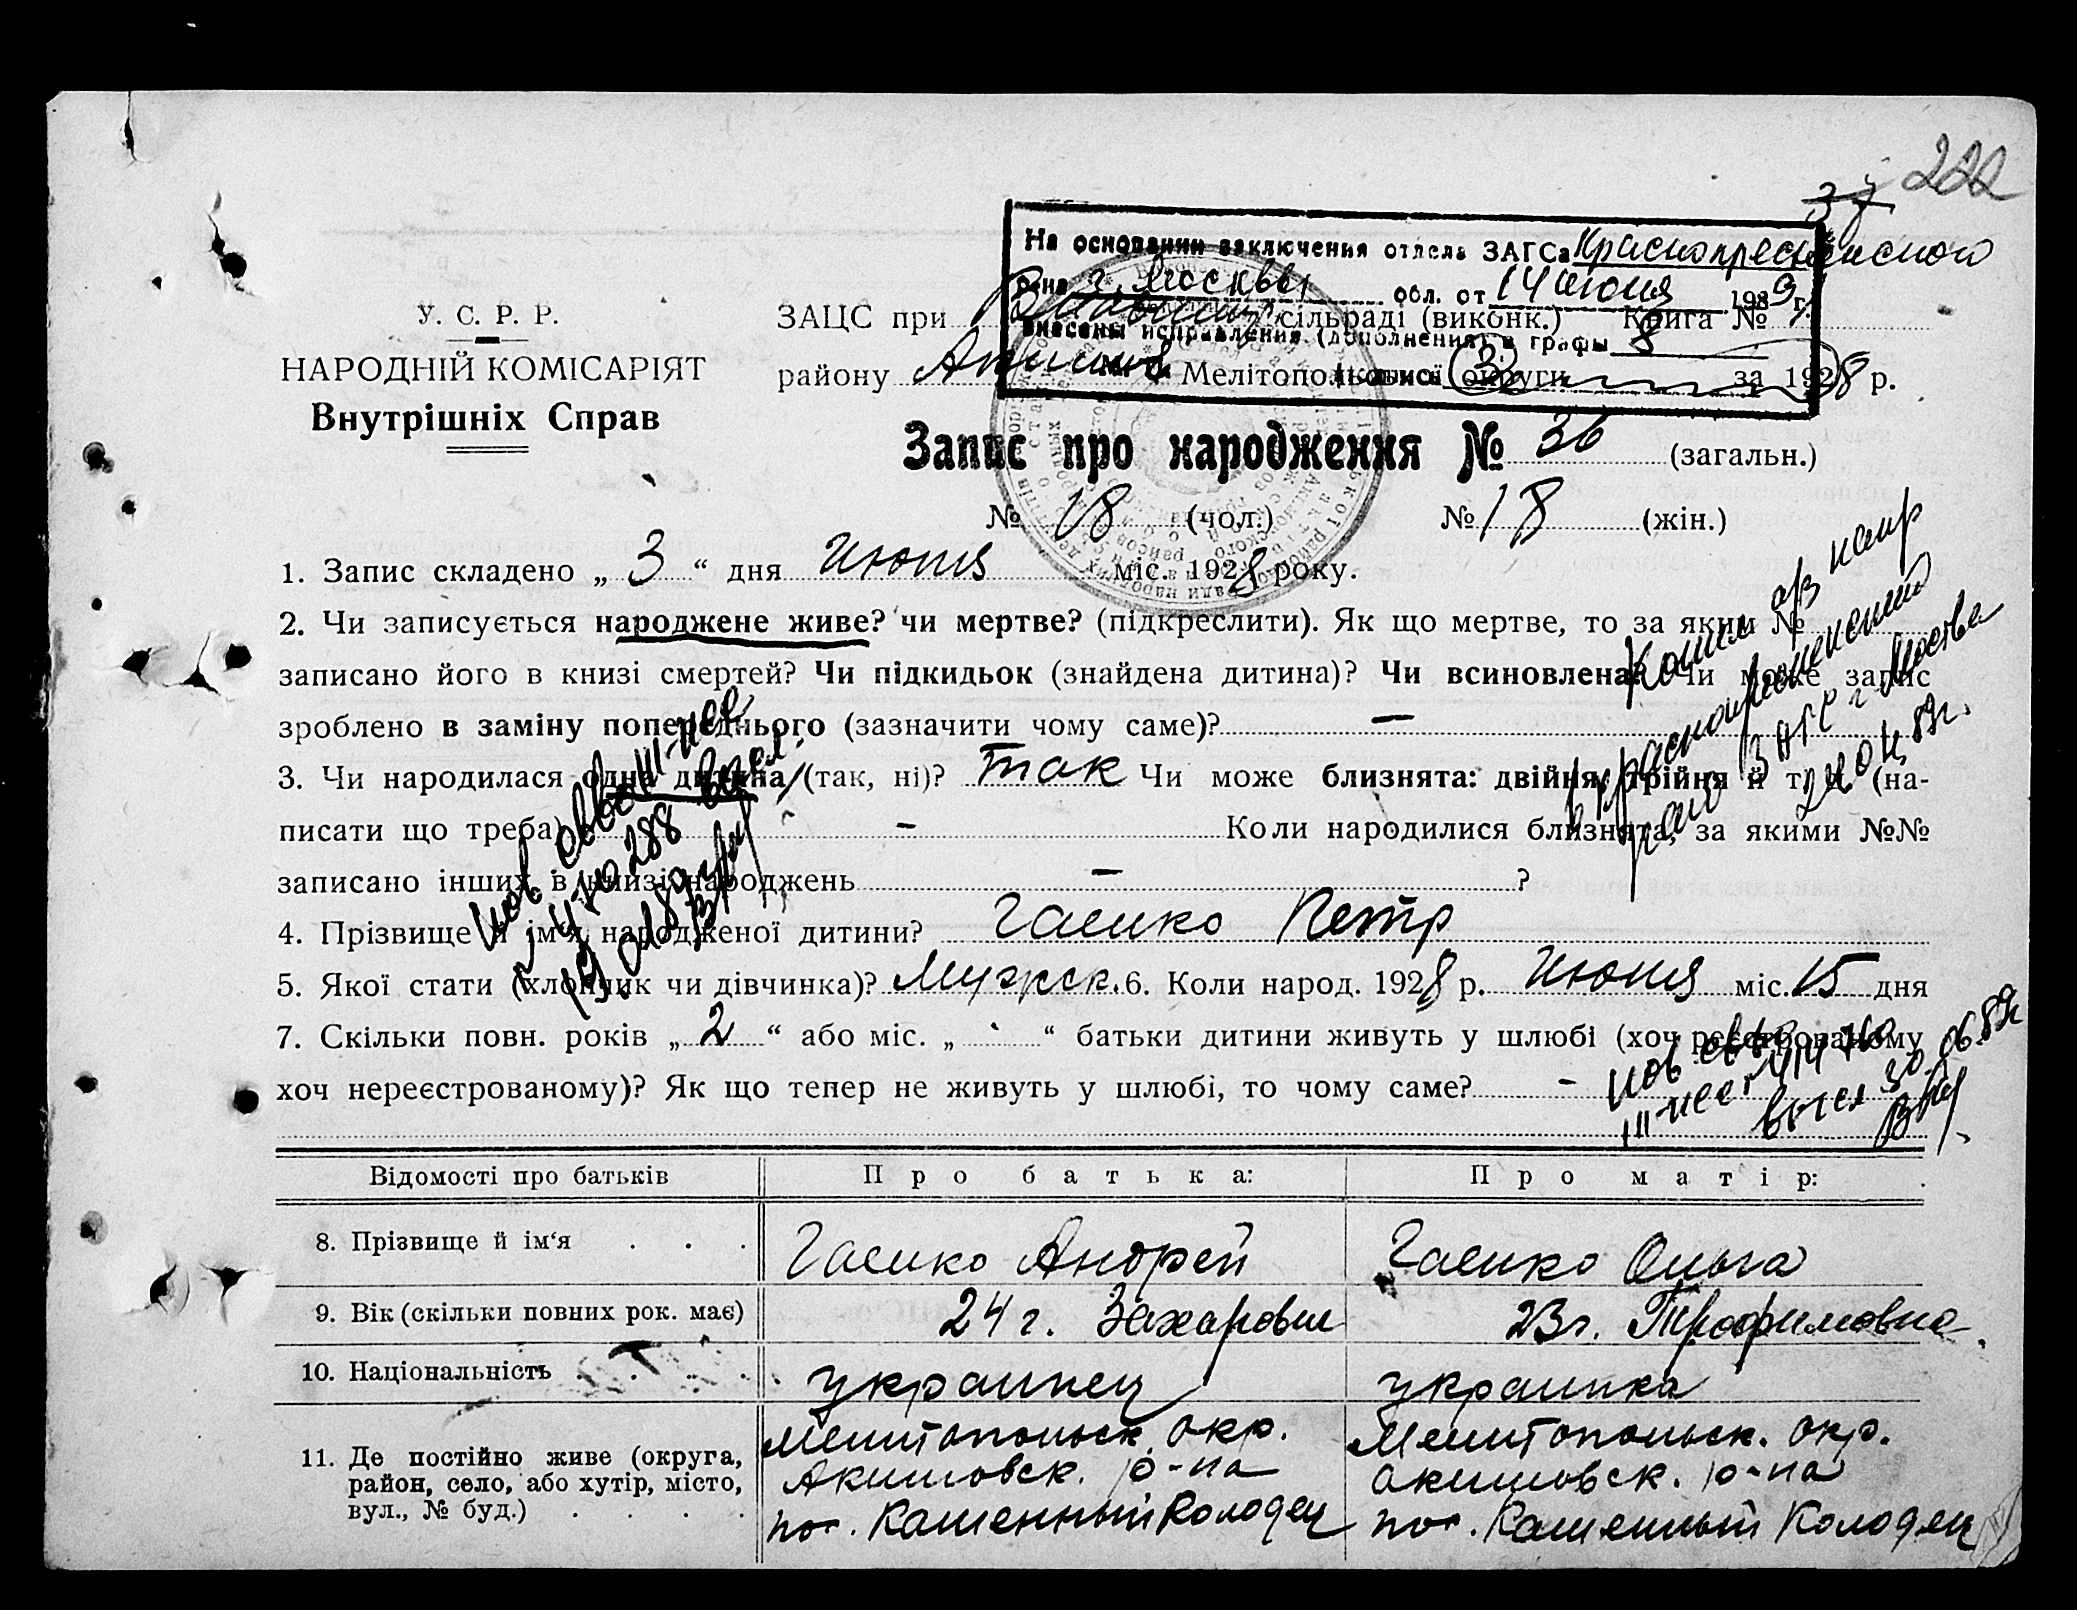 222
37
На основании заключения отдела ЗАГСа Краснопресненского
р-на г. Москвы обл. от 14 июня 1989 г.
внесены исправления (дополнения) в графы 8
У. С. Р. Р.
НАРОДНІЙ КОМІСАРІЯТ
Внутрішніх Справ
ЗАЦС при сільраді (виконк.) Книга №
району Мелітопольської округи за 1928 р.
Запис про народження № 36 (загальн.)
№ 18 (чол.) № 18 (жін.)
1. Запис складено „ 3 “ дня Июня міс. 1928 року.
2. Чи записується народжене живе? чи мертве? (підкреслити). Як що мертве, то за яким №
записано його в книзі смертей? Чи підкидьок (знайдена дитина)? Чи всиновлена? Чи може запис
зроблено в заміну попереднього (зазначити чому саме)? —
3. Чи народилася одна дитина (так, ні)? так Чи може близнята: двійня, трійня й т. д. (на-
писати що треба) – Коли народилися близнята, за якими №№
записано інших в книзі народжень – ?
4. Прізвище й ім'я народженої дитини? Гаенко Петр
5. Якої стати (хлопчик чи дівчинка)? Мужск. 6. Коли народ. 1928 р. Июня міс. 15 дня
7. Скільки повн. років „ 2 “ або міс. „ “ батьки дитини живуть у шлюбі (хоч реєстрованому
хоч нереєстрованому)? Як що тепер не живуть у шлюбі, то чому саме? –
Копия аз напр
в Краснопресненский
ЗАГС г Москва
89г.
пов св-во III-
288
пов св-во
30.06.89г
Відомості про батьків Про батька: Про матір:
8. Прізвище й ім‘я . . . Гаенко Андрей Гаенко Ольга
9. Вік (скільки повних рок. має) 24 г. Захарович 23 г. Трофимовна
10. Національність украинец украинка
11. Де постійно живе (округа, район, село, або хутір, місто, вул., № буд.) . . . .
Мелитопольск. окр. Мелитопольск. окр.
Акимовск. р-на Акимовск. р-на
пос. Каменный Колодец пос. Каменный Колодец